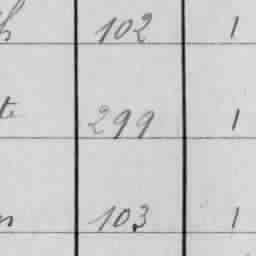 102 1
299 1
103 1